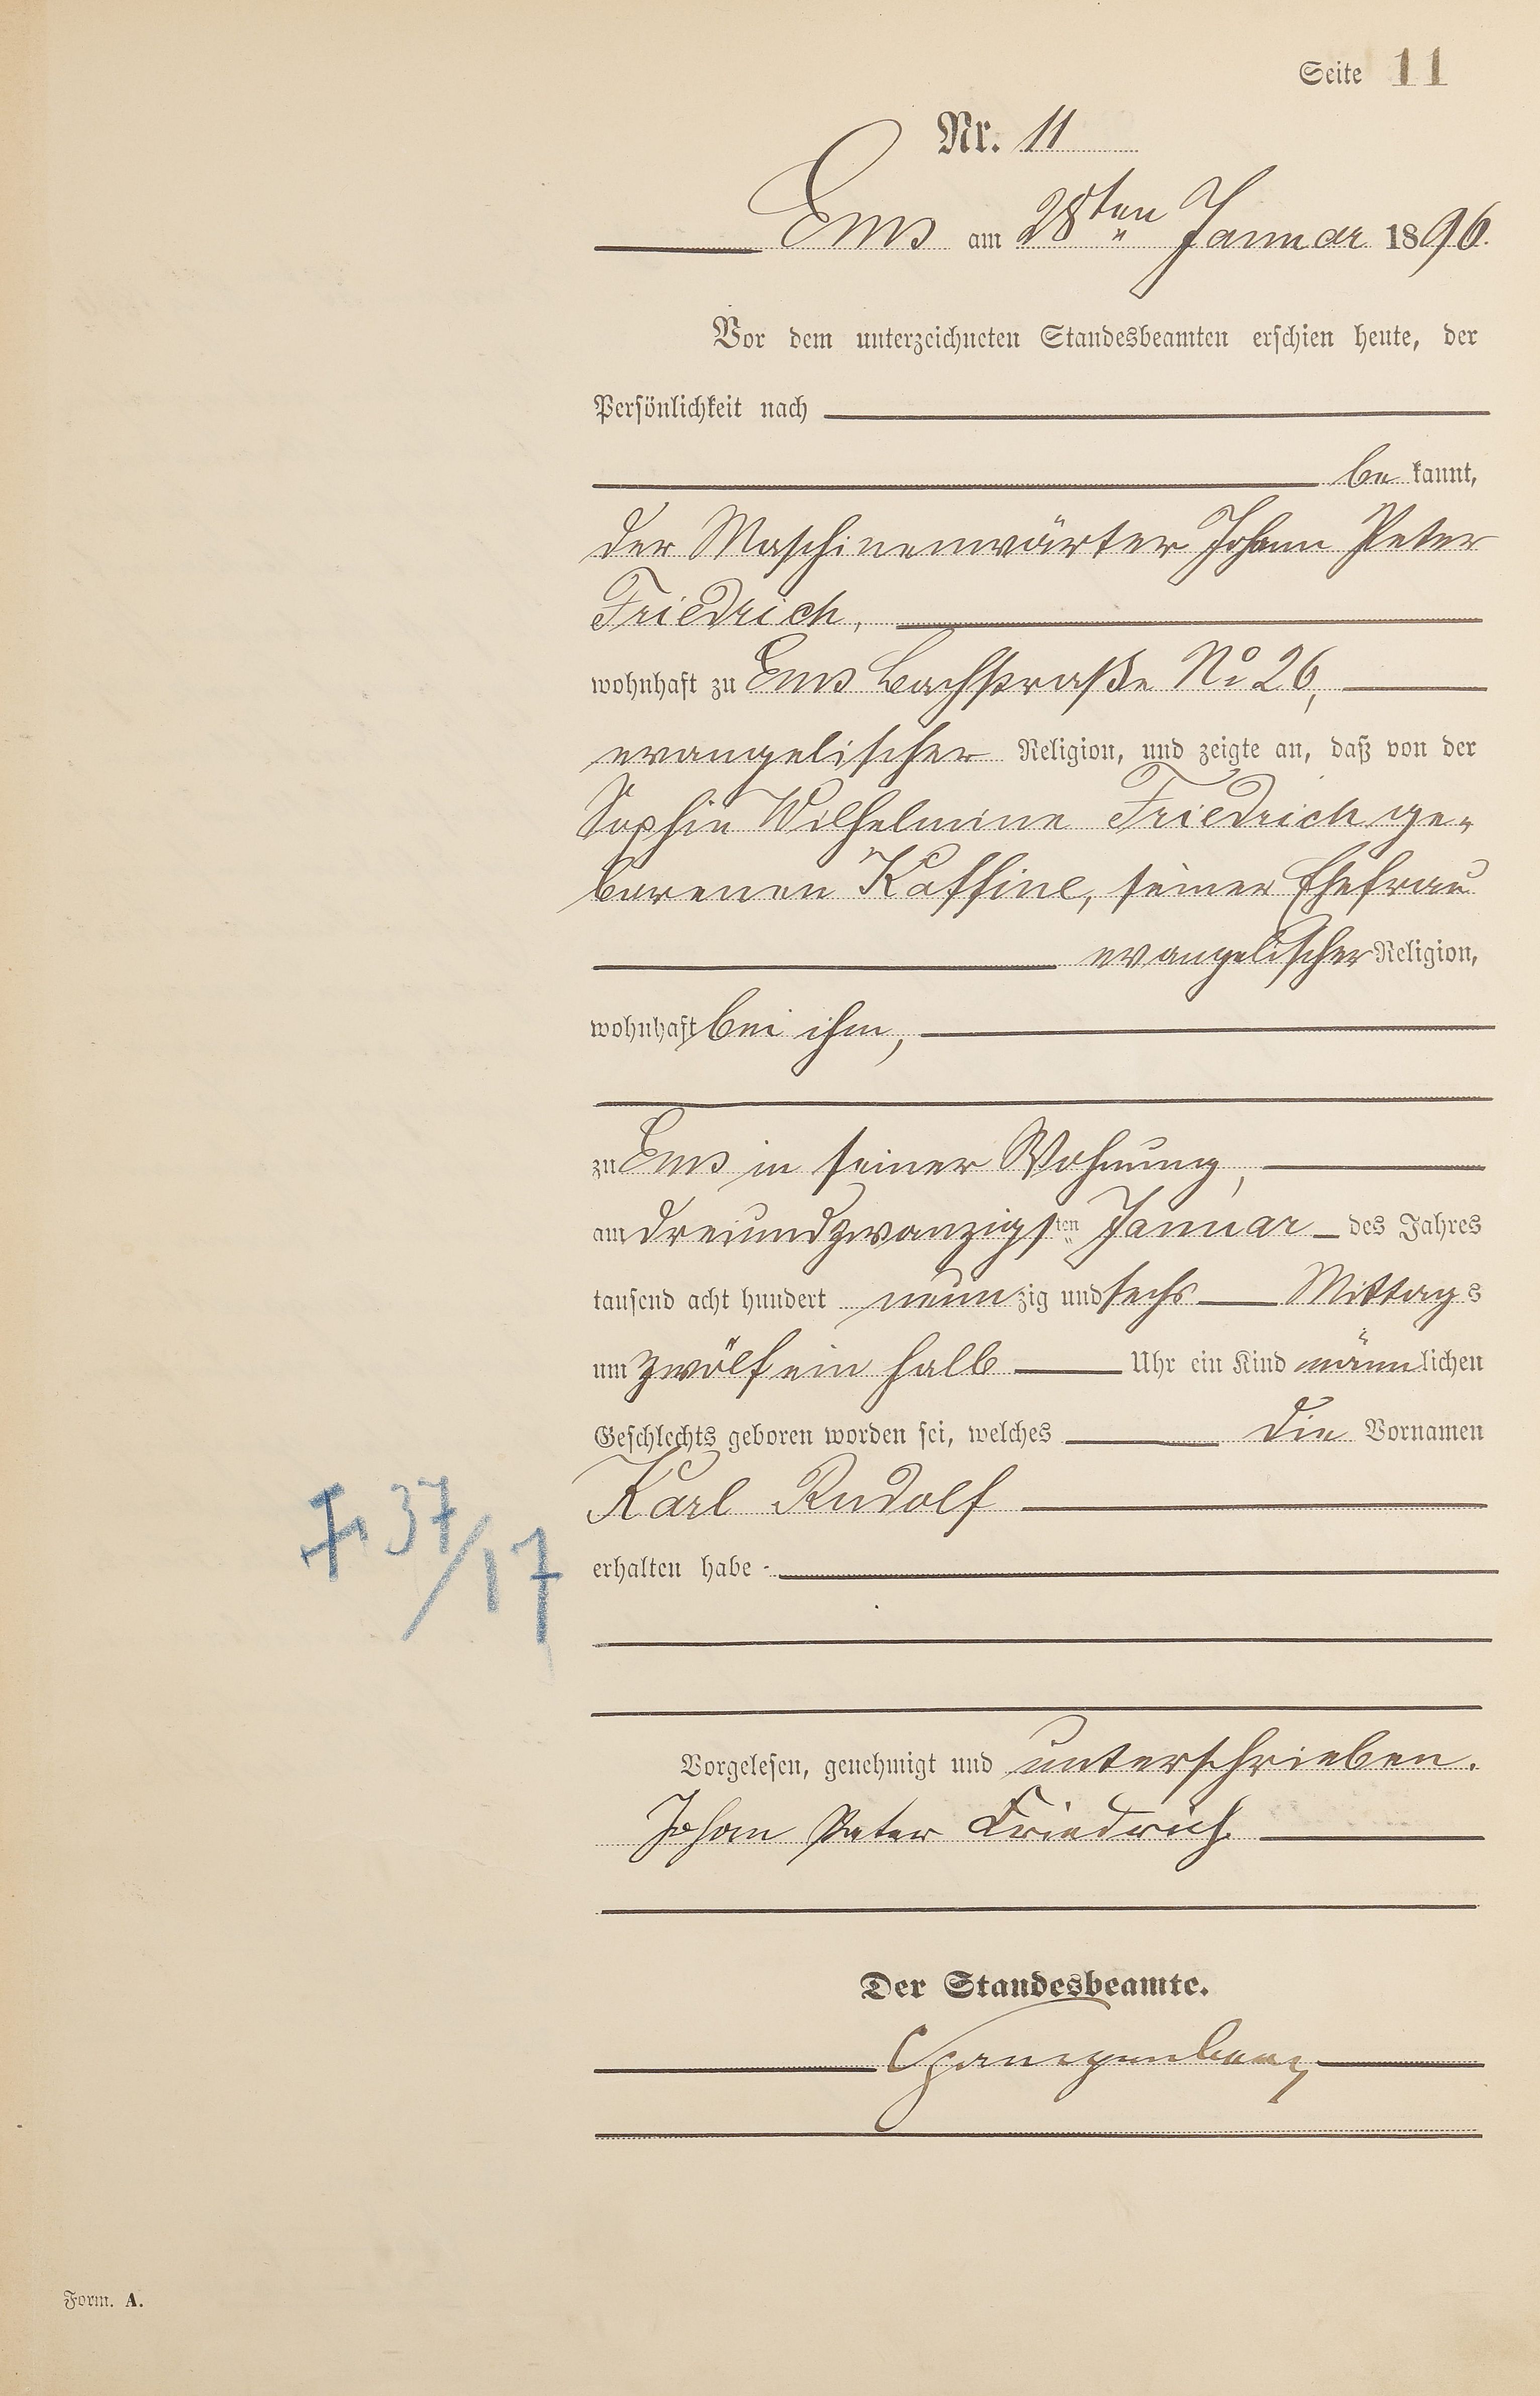 Seite 11
Nr. 11
Ems am 28ten Januar 1896.
Vor dem unterzeichneten Standesbeamten erschien heute, der
Persönlichkeit nach
be kannt,
der Maschinenwärter Johann Peter
Friedrich,
wohnhaft zu Ems Bachstraße No 26,
evangelischer Religion, und zeigte an, daß von der
Sophie Wilhelmine Friedrich ge-
borenen Kaffine, seiner Ehefrau
evangelischer Religion,
wohnhaft bei ihm,
zu Ems in seiner Wohnung,
am dreiundzwanzigsten Januar des Jahres
tausend acht hundert neunzig und sechs Mittags
um zwölf ein halb Uhr ein Kind männlichen
Geschlechts geboren worden sei, welches die Vornamen
Karl Rudolf
erhalten habe.
† 37/17
Vorgelesen, genehmigt und unterschrieben.
Johan Peter Friedrich
Der Standesbeamte.
Form. A.